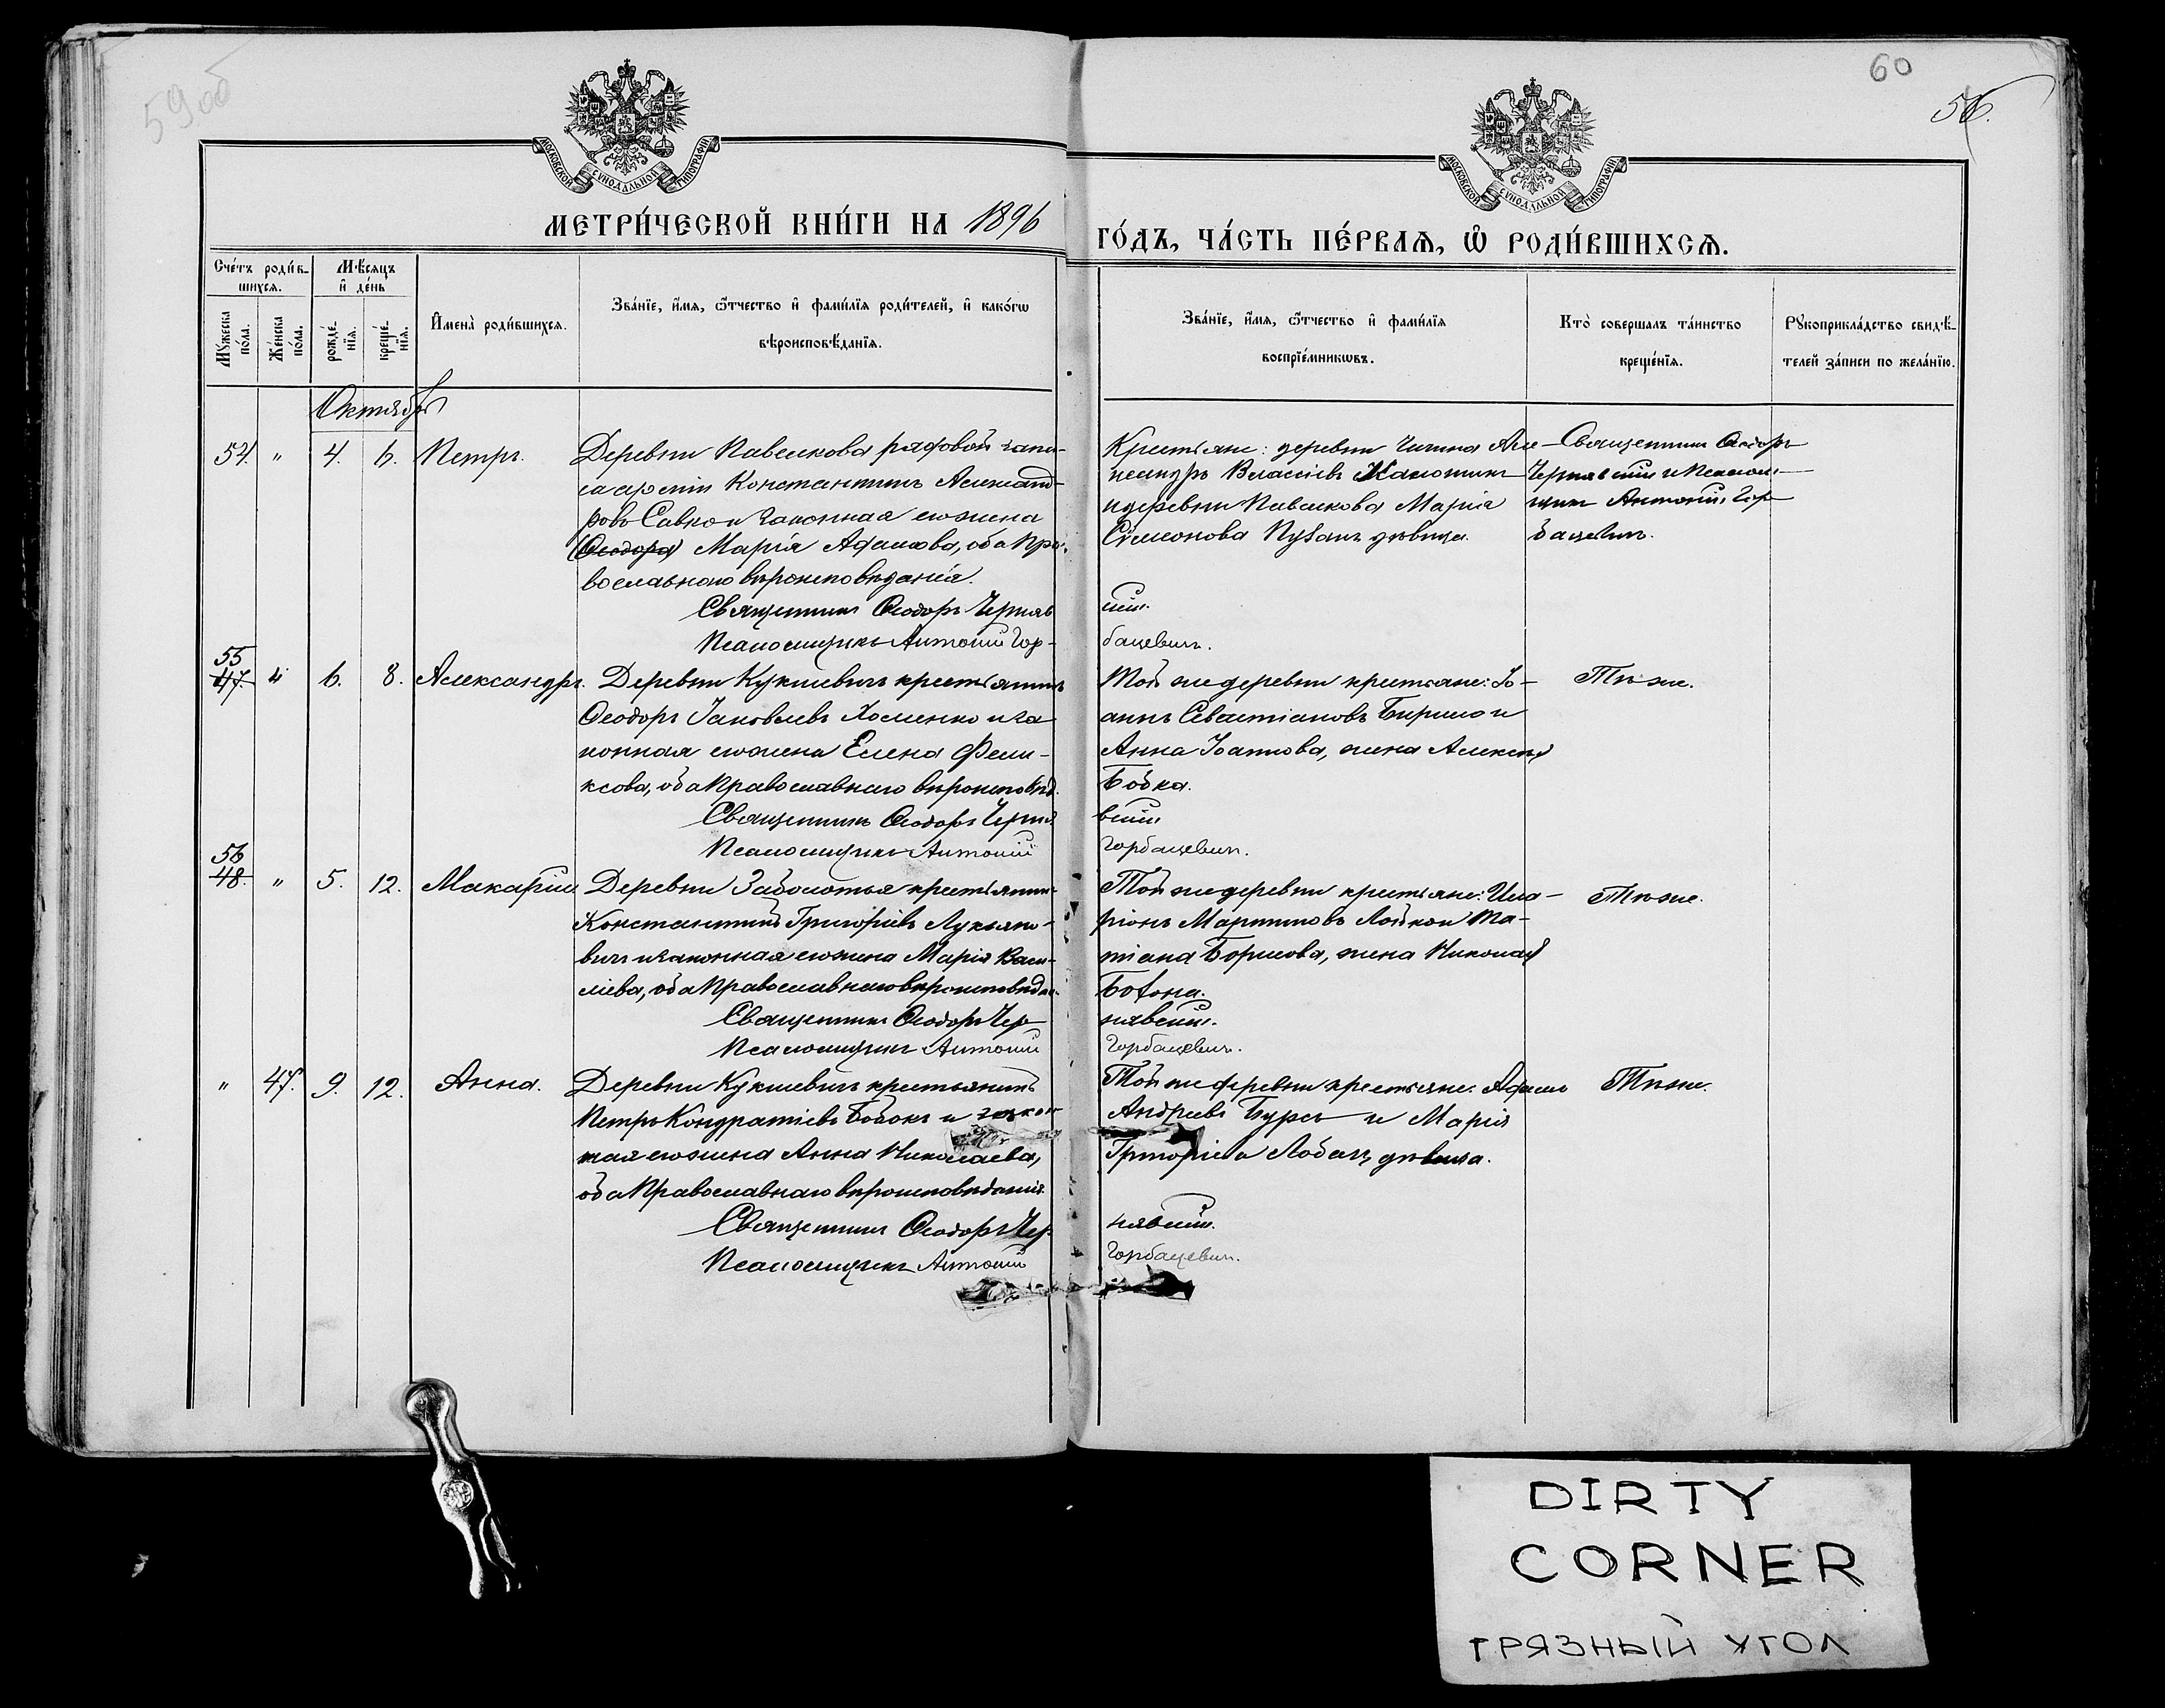 59об
60
56.
МОСКОВСКОЙ СУНОДАЛЬНОЙ ТИПОГРАФІИ
МОСКОВСКОЙ СУНОДАЛЬНОЙ ТИПОГРАФІИ
МЕТРИ́ЧЕСКОЙ КНИ́ГИ НА 1896
ГО́ДЪ, ЧА́СТЬ ПЕ́РВАѦ, Ѡ҆ РОДИ́ВШИХСѦ.
Сче́тъ роди́в-
шихсѧ.
Мѣ́сѧцъ
и҆ де́нь
Мꙋ́жеска
по́ла.
Же́нска
по́ла.
рожде́-
нїѧ.
креще́-
нїѧ.
И҆мена̀ роди́вшихсѧ.
Зва́нїе, и҆́мѧ, ѻ҆́тчество и҆ фами́лїѧ роди́телей, и҆ како́гѡ
вѣроисповѣ́данїѧ.
Зва́нїе, и҆́мѧ, ѻ҆́тчество и҆ фами́лїѧ
воспрїе́мникѡвъ.
Кто̀ соверша́лъ та́инство
креще́нїѧ.
Рꙋкоприкла́дство свидѣ́-
телей за́писи по жела́нїю.
Октябрь
54. " 4. 6. Петръ.
Деревни Павелкова рядовой запа-
са арміи Константинъ Александ-
ровъ Савко и законная его жена
(Ѳеодора) Марія Адамова, оба Пра-
вославнаго вѣроисповѣданія.
Священникъ Ѳеодоръ Черняв
Псаломщикъ Антоній Гор-
Крестьяне: деревни Але-
ксандръ Власіевъ
и деревни Павелкова Марія
Симонова дѣвица.
скій.
бацевичъ.
Священникъ Ѳеодоръ
Чернявскій и Псалом-
щикъ Антоній Гор
бацевичъ.
55
47. " 6. 8. Александръ.
Деревни Кукшевичъ крестьянинъ
Ѳеодоръ Іаковлевъ Хоменко и за
конная его жена Елена Фели-
ксова, оба Православнаго вѣроисповѣд.
Священникъ Ѳеодоръ Черня
Псаломщикъ Антоній
Той же деревни крестьяне: Іо-
аннъ Севастіановъ Бирило и
Анна Іоаннова, жена Алексѣя
Бобка.
вскій
Горбацевичъ.
Тѣ же.
56
48. " 5. 12. Макарій
Деревни Заболотья крестьянин
Константинъ Григоріевъ Лукьяно-
вичъ и законная его жена Марія Васи-
ліева, оба Православнаго вѣроисповѣдан.
Священникъ Ѳеодоръ Чер
Псаломщикъ Антоній
Той же деревни крестьяне: Ила-
ріонъ Мартиновъ Лойко и Та-
тіана Борисова, жена Николая
нявскій.
Горбацевичъ.
Тѣ же.
" 47. 9. 12. Анна.
Деревни Кукшевичъ крестьянинъ
Петръ Кондратіевъ Бобокъ и закон
ная его жена Анна Николаева,
оба Православнаго вѣроисповѣданія.
Священникъ Ѳеодоръ Чер.
Псаломщикъ Антоній
Той же деревни крестьяне: Адамъ
Андреевъ и Марія
Григоріева Лобачъ дѣвица.
нявскій.
Горбацевичъ.
Тѣ же.
DIRTY
CORNER
ГРЯЗНЫЙ УГОЛ